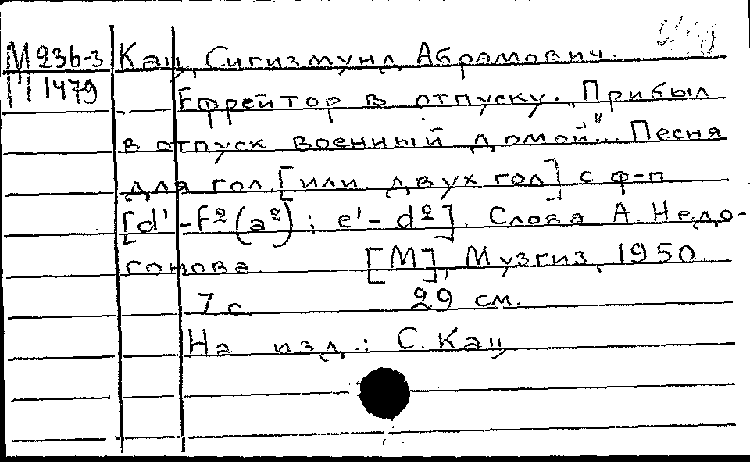 М 236-3 Кац, Сигизмунд Абрамович.
П 1479
Ефрейтор в отпуску. „Прибыл
в отпуск военный домой"... Песня
для гол. [или двух гол] с ф-п
[d'-f²(a²); e'-d²]. Слова А. Недо-
гонова. [М], Музгиз, 1950
7 с. 29 см.
На изд.: С. Кац